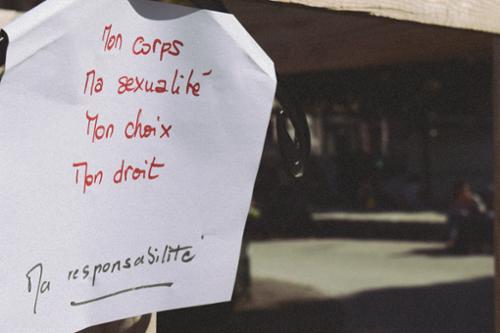 Mon corps
Ma sexualité
Mon choix
Mon droit
Ma responsabilité